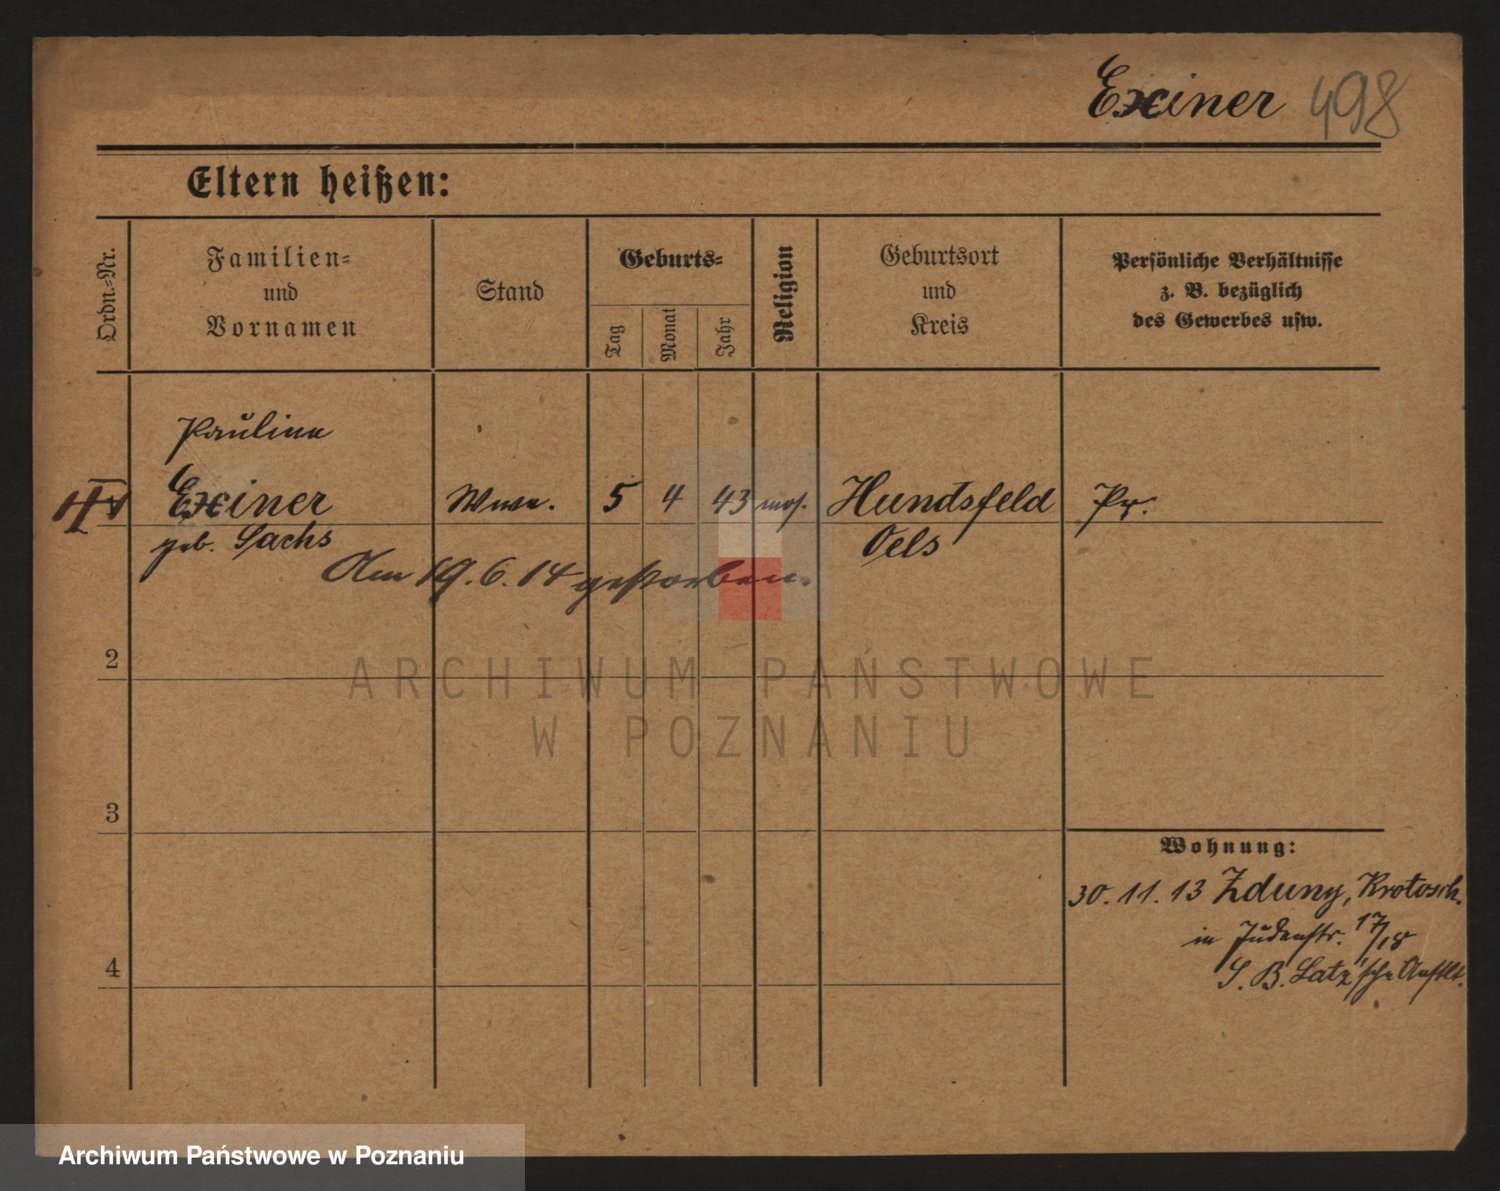 Exiner 498
Eltern heißen:
Ordn.=Nr.
Familien=
und
Vornamen
Stand
Geburts=
Tag
Monat
Jahr
Religion
Geburtsort
und
Kreis
Persönliche Verhältnisse
z. B. bezüglich
des Gewerbes usw.
Pauline
Exiner Wwe. 5 4 43 mos. Hundsfeld Pr.
geb. Sachs Oels
Am 19.6.14 gestorben.
2
3
4
Wohnung:
30.11.13 Zduny, Krotosch.
in Judenstr. 17/18
S. B. Latz'sche Anstlt.
ARCHIWUM PAŃSTWOWE
W POZNANIU
Archiwum Państwowe w Poznaniu